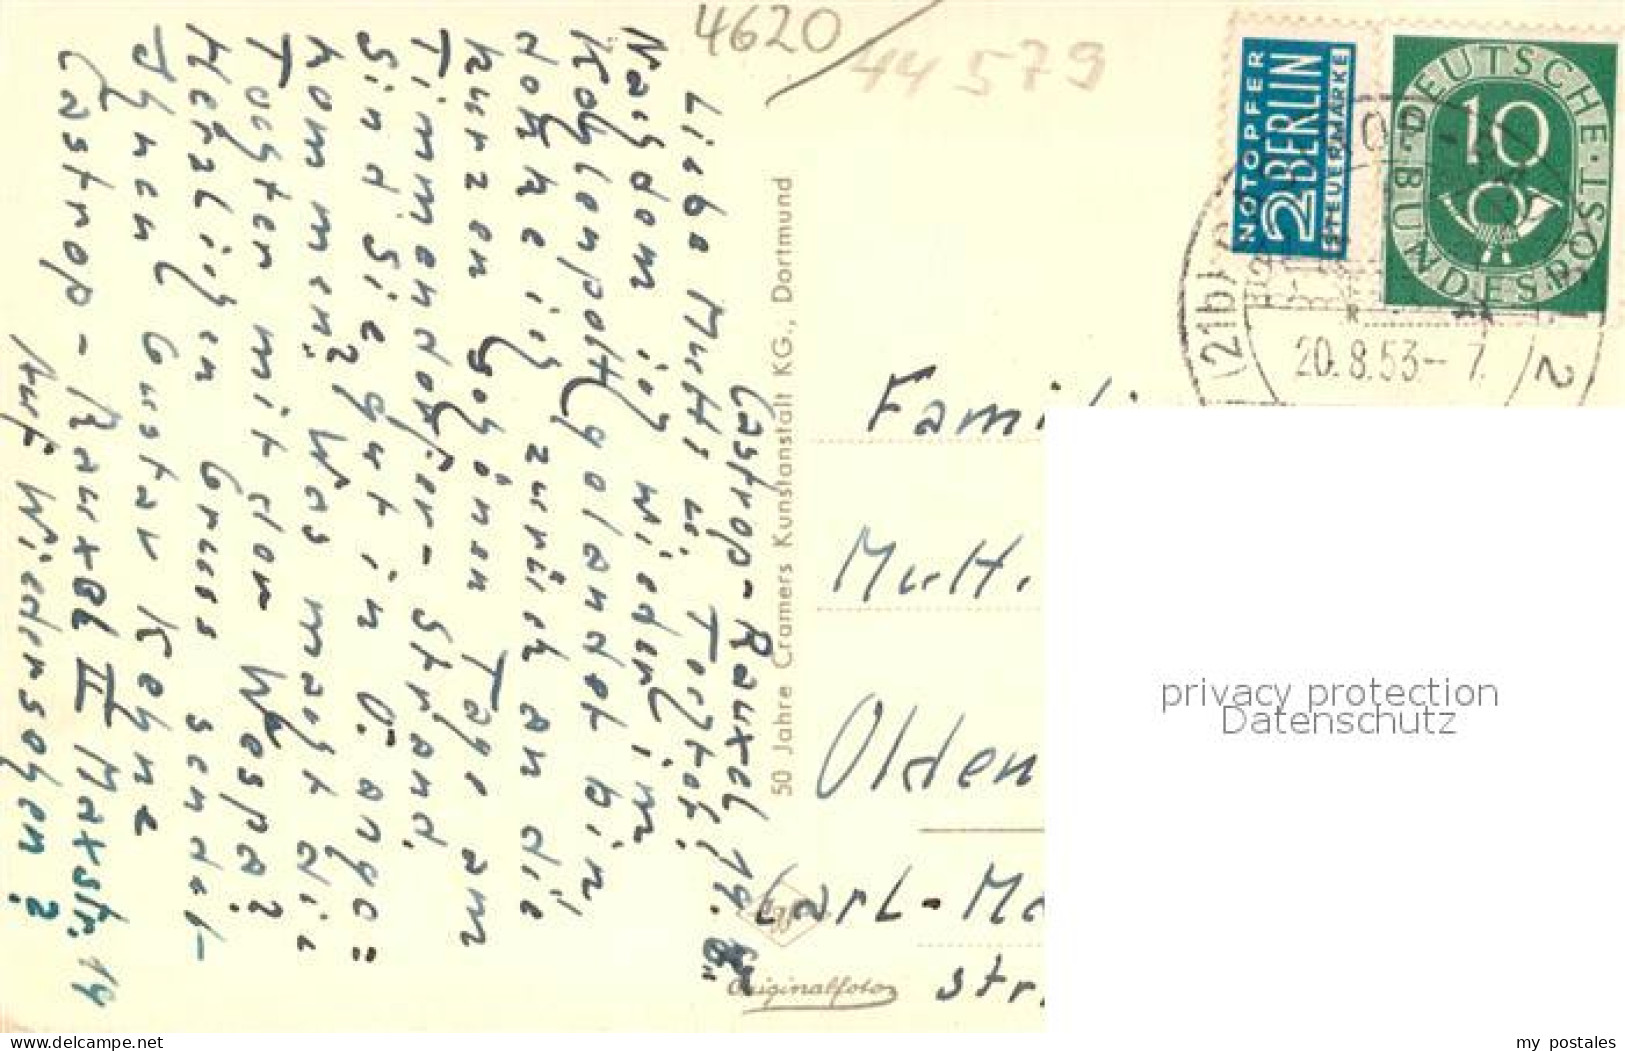 4620
44579
NOTOPFER
2 BERLIN
STEUERMARKE
DEUTSCHE BUNDESPOST
10
(21b)
20.8.53-- 7
2
Castrop-Rauxel, 19. 8.
Liebe Mutti u.
Nachdem ich wieder im
Kohlenpott gelandet bin
denke ich zurück an die
kurzen schönen Tage am
Timmendorfer-Strand.
Sind Sie gut in O. ange=
kommen? Was macht die
Tochter mit der Wespa?
Herzlichen Gruss sendet
Ihnen Gustav Kehne
Castrop-Rauxel II Maxstr. 14
Auf Wiedersehen?
50 Jahre Cramers Kunstanstalt KG., Dortmund
Originalfoto
Famili
Mutt
Olden
Carl-Ma
str.
privacy protection
Datenschutz
www.ak-ansichtskarten.de
my_postales